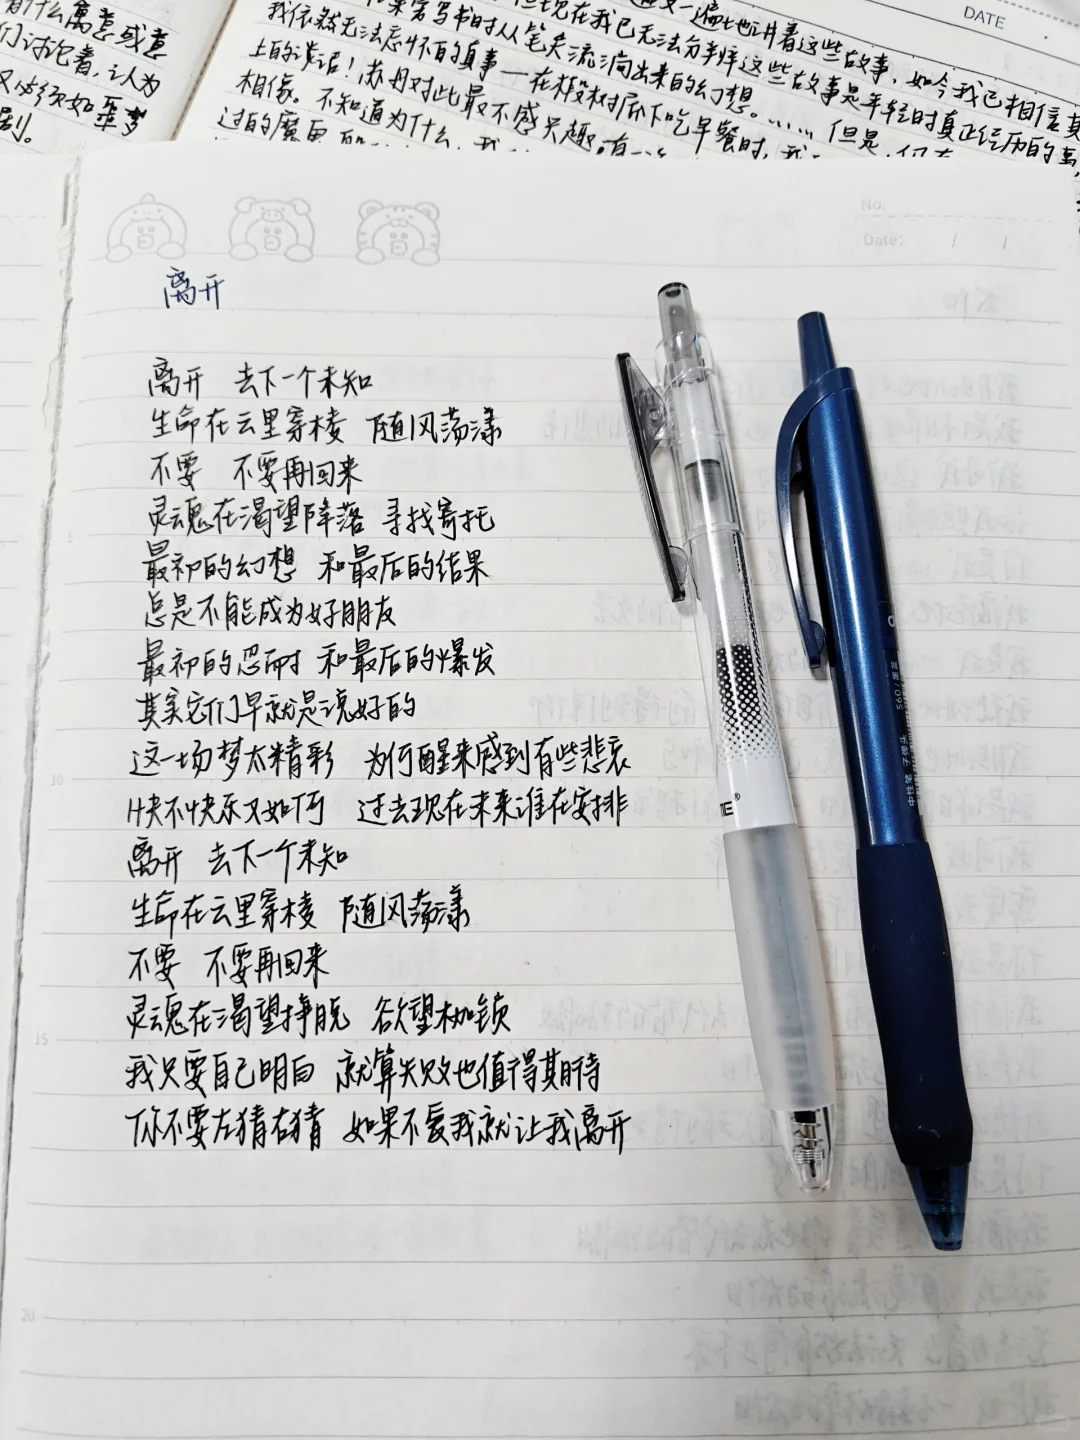 有什么寓意或意
们讨论着，认为
又必须如噩梦
剧。
DATE
一遍地讲着这些故事，如今我已相信其
写书时从笔尖流淌出来的幻想。……但是
但现在我已无法分辨这些故事是年轻时真正经历的
我依然无法忘怀的真事——在椴树底下吃早餐时，我
上的谈话！苏丹对此最不感兴趣。有一
相像。不知道为什么，我
过的魔鬼
No.
Date: / /
离开
离开 去下一个未知
生命在云里穿梭 随风荡漾
不要 不要再回来
灵魂在渴望降落 寻找寄托
最初的幻想 和最后的结果
总是不能成为好朋友
最初的忍耐 和最后的爆发
其实它们早就是说好的
这一场梦太精彩 为何醒来感到有些悲哀
快不快乐又如何 过去现在未来谁在安排
离开 去下一个未知
生命在云里穿梭 随风荡漾
不要 不要再回来
灵魂在渴望挣脱 欲望枷锁
我只要自己明白 就算失败也值得期待
你不要左猜右猜 如果不爱我就让我离开
5
10
15
20
中性笔 子弹头